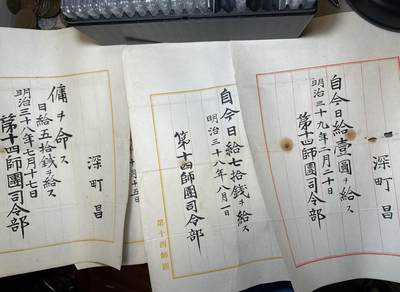 深町 昌
自今日給壹圓ヲ給ス
明治三十九年一月二十日
第十四師團司令部
自今日給七拾錢ヲ給ス
明治三十八年八月一日
第十四師團司令部
第十四師團
深町 昌
傭ヲ命ス
日給五拾錢ヲ給ス
明治三十八年 月十七日
第十四師團司令部
十五日